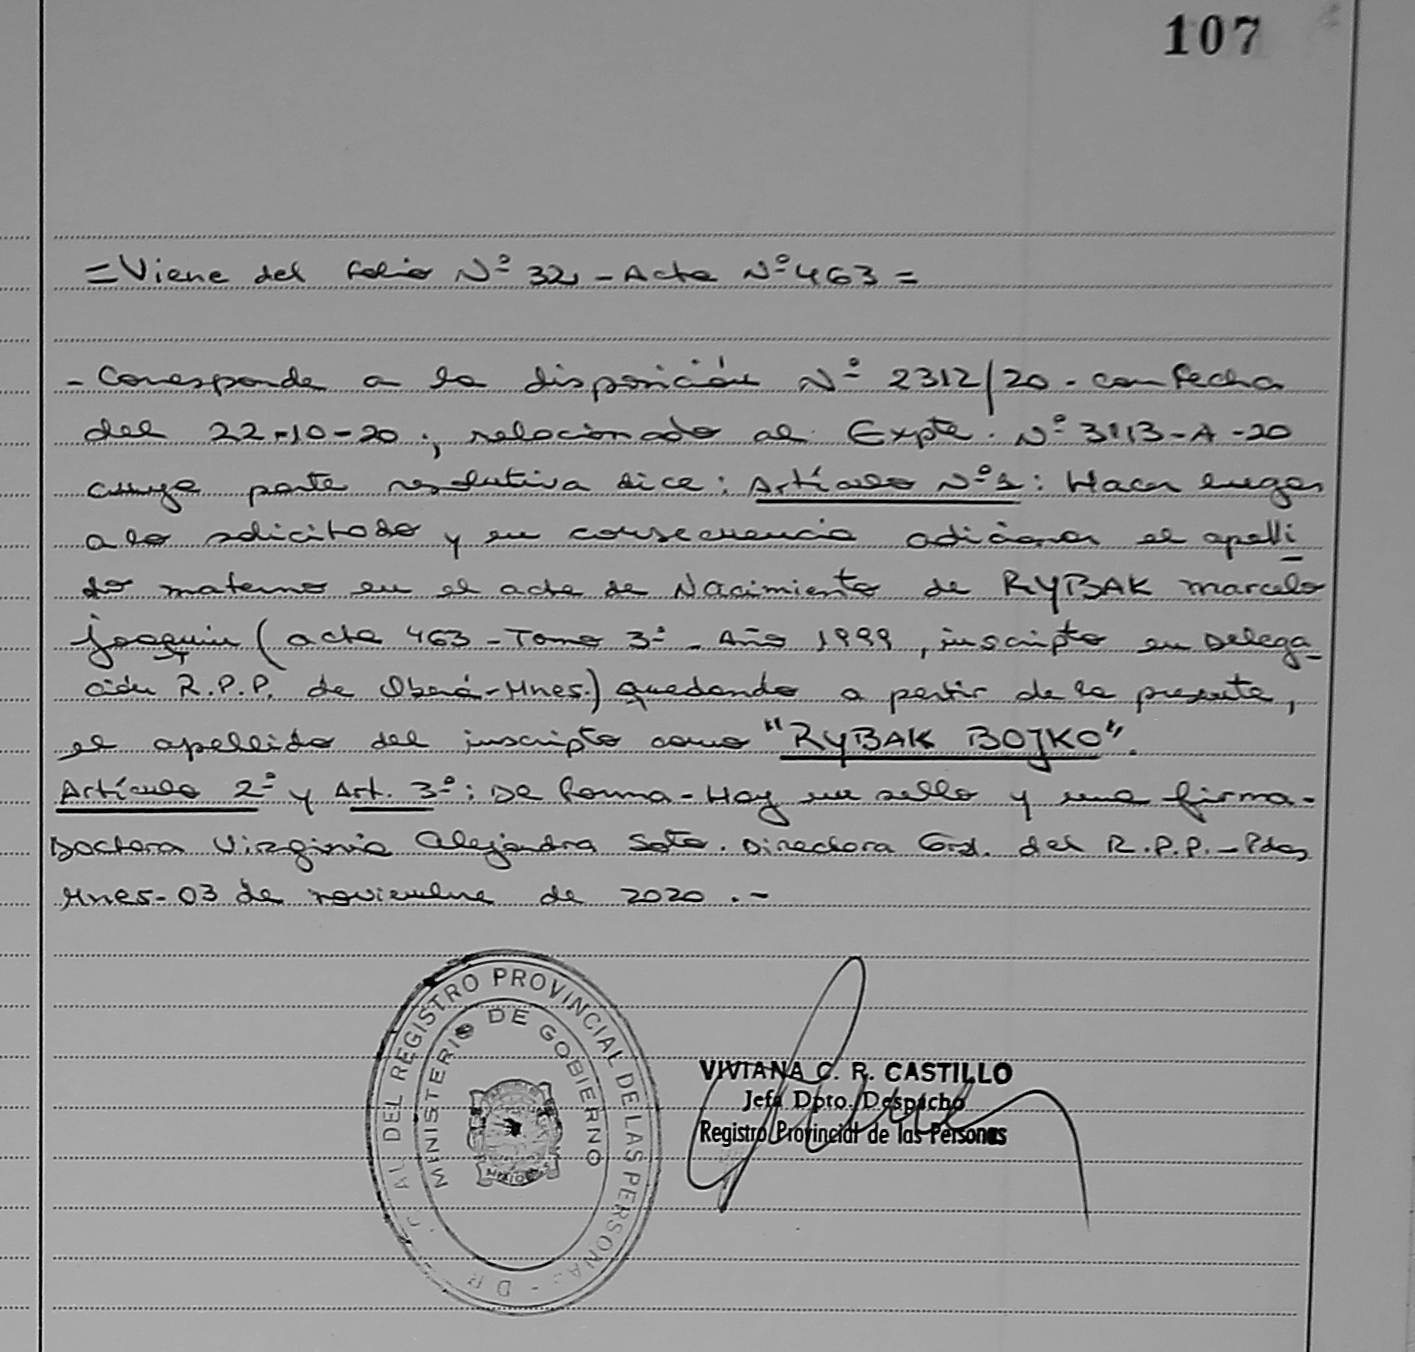 107
= Viene del folio Nº 32 - Acta Nº 463 =
- Corresponde a la disposición Nº 2312/20 - con fecha
del 22-10-20 ; relacionado al Expte. Nº 3113-A-20
cuya parte resolutiva dice : Artículo Nº 1 : Hacer lugar
a lo solicitado y en consecuencia adicionar el apelli
do materno en el acta de Nacimiento de RYBAK Marcelo
Joaquin ( acta 463 - Tomo 3º - Año 1999 , inscripto en Delega-
ción R.P.P. de Oberá - Mnes.) quedando a partir de la presente,
el apellido del inscripto como "RYBAK BOJKO".
Artículo 2º y Art. 3º : De forma - Hay un sello y una firma -
Doctora Virginia Alejandra Soto . Directora Gral. del R.P.P. - Pdas
Mnes - 03 de noviembre de 2020 . -
AL DEL REGISTRO PROVINCIAL DE LAS PERSONAS
MINISTERIO DE GOBIERNO
VIVIANA C. R. CASTILLO
Jefa Dpto. Despacho
Registro Provincial de las Personas